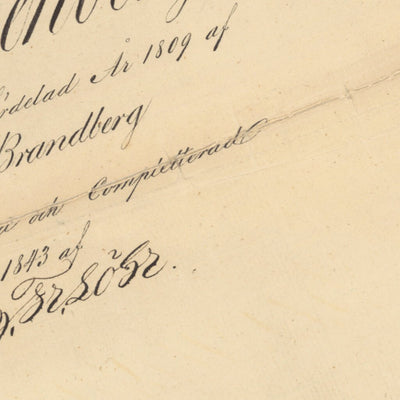 rdelad År 1809 af
Brandberg
och Completterad
1843 af
Fr. Löhr.